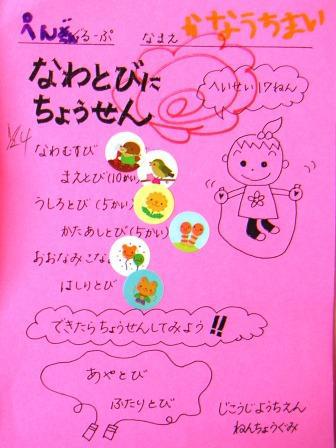 ぺんぎんぐるーぷ なまえ かなうちまい
なわとびに
ちょうせん
へいせい17ねん
1/24
なわむすび
まえとび(10かい)
うしろとび(5かい)
かたあしとび(5かい)
おおなみこな
はしりとび
できたらちょうせんしてみよう!!
あやとび
ふたりとび
じこうじようちえん
ねんちょうぐみ